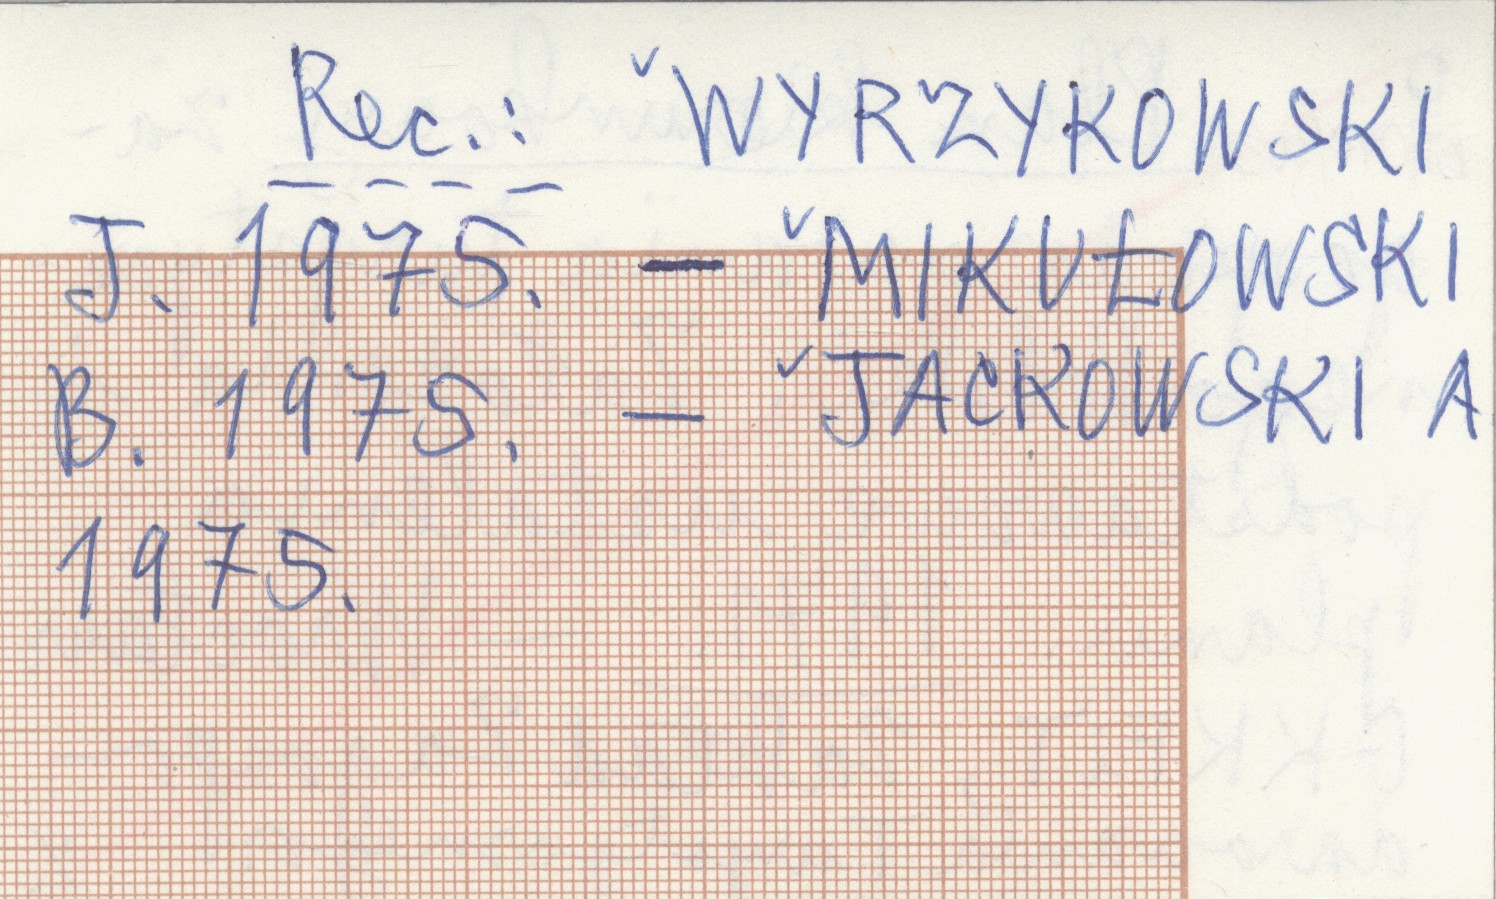 Rec.: ˇWYRZYKOWSKI
J. 1975. — ˇMIKUŁOWSKI
B. 1975. — ˇJACKOWSKI A
1975.